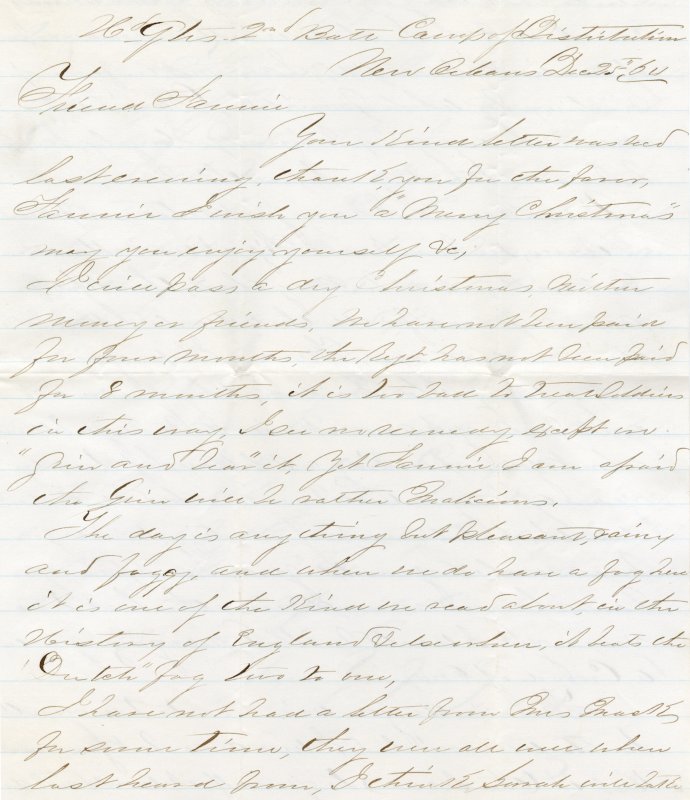 Hd Qtrs. 2nd Batt Camp of Distribution
New Orleans Dec 25th, 64
Friend Fannie
Your kind letter was recd
last evening, thank you for the favor,
Fannie I wish you a "Merry Christmas"
may you enjoy yourself &c,
I will pass a dry Christmas, neither
money or friends, we have not been paid
for four months, the Regt has not been paid
for 8 months, it is too bad to treat Soldiers
in this way, I see no remedy, except we
"grin and bear" it, yet Fannie I am afraid
the Grin will be rather Malicious.
The day is anything but pleasant, rainy
and foggy, and when we do have a fog here
it is one of the kind we read about, in the
History of England & elsewhere, it beats the
"Dutch" fog two to one,
I have not had a letter from Mrs
for some time, they were all well when
last heard from, I think Sarah will take